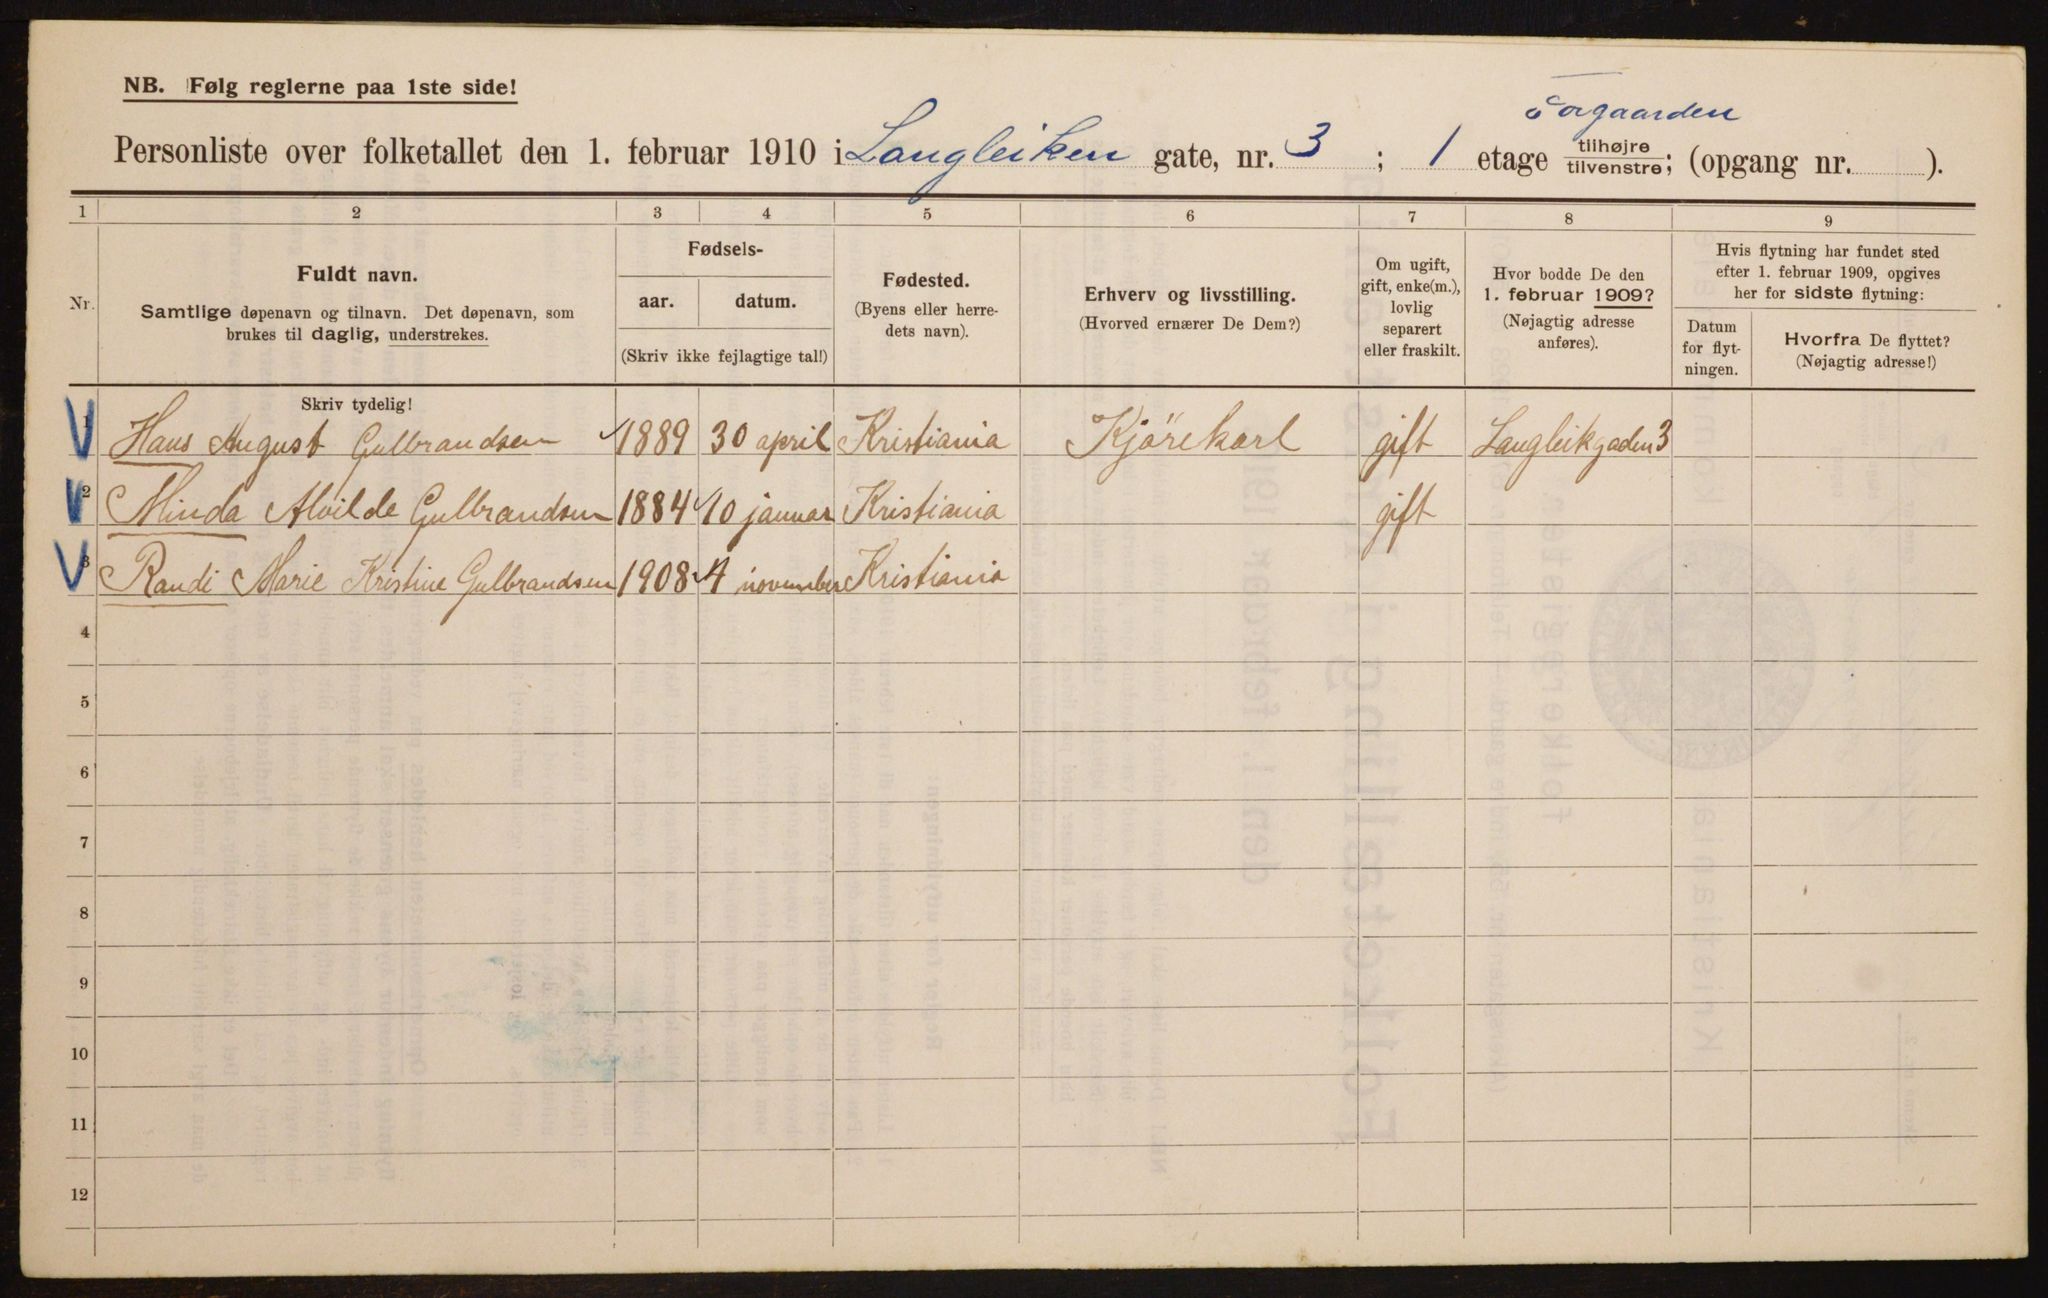 NB. Følg reglerne paa 1ste side!
Forgaarden
Personliste over folketallet den 1. februar 1910 i Langleiken gate, nr. 3 ; 1 etage tilhøjre/tilvenstre; (opgang nr. ).
1 2 3 4 5 6 7 8 9
Nr.
Fuldt navn.
Samtlige døpenavn og tilnavn. Det døpenavn, som
brukes til daglig, understrekes.
Fødsels-
aar. datum.
(Skriv ikke fejlagtige tal!)
Fødested.
(Byens eller herre-
dets navn).
Erhverv og livsstilling.
(Hvorved ernærer De Dem?)
Om ugift,
gift, enke(m.),
lovlig
separert
eller fraskilt.
Hvor bodde De den
1. februar 1909?
(Nøjagtig adresse
anføres).
Hvis flytning har fundet sted
efter 1. februar 1909, opgives
her for sidste flytning:
Datum
for flyt-
ningen.
Hvorfra De flyttet?
(Nøjagtig adresse!)
Skriv tydelig!
1 Hans August Gulbrandsen 1889 30 april Kristiania Kjörekarl gift Langleikgaden 3
2 Minda Alvilde Gulbrandsen 1884 10 januar Kristiania gift
3 Randi Marie Kristine Gulbrandsen 1908 4 november Kristiania
4
5
6
7
8
9
10
11
12